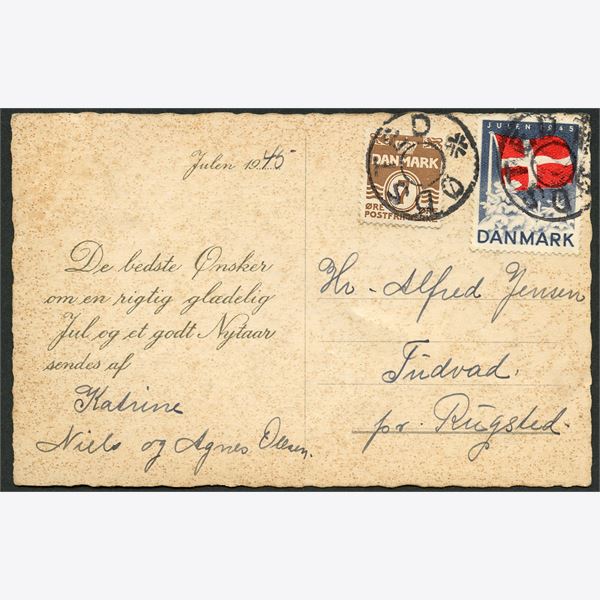 Julen 1945
De bedste Ønsker
om en rigtig glædelig
Jul og et godt Nytaar
sendes af
Katrine
Niels og Agnes Olsen.
DANMARK
ØRE
POSTFRIM
JULEN 1945
DANMARK
Hr. Alfred Jensen
Tudvad.
pr. Rugsted.